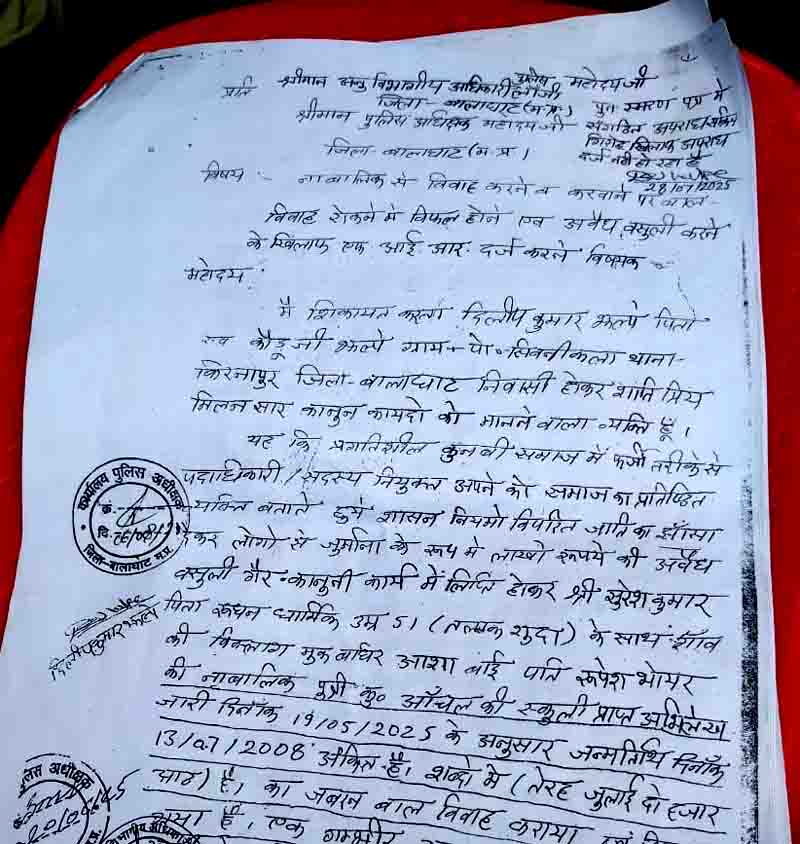 प्रति श्रीमान अनु विभागीय अधिकारी पुलिस महोदय जी
लांजी
जिला - बालाघाट (म.प्र.)
श्रीमान पुलिस अधिक्षक महोदय जी
जिला - बालाघाट (म.प्र.)
पुनः स्मरण पत्र में
संगठित अपराध
गिरोह खिलाफ अपराध
दर्ज नही हो रहा है
28/07/2025
विषय :- नाबालिक से विवाह करने व करवाने पर बाल-
विवाह रोकने मे विफल होने एव अवैध वसुली करने
के खिलाफ एफ आई आर. दर्ज करने विषयक
महोदय :
मै शिकायत कर्ता दिलीप कुमार झल्पे पिता
स्व कोडू जी झल्पे ग्राम + पो॰ सिवनीकला थाना-
किरनापुर जिला - बालाघाट निवासी होकर शांति प्रिय
मिलन सार कानुन कायदो को मानने वाला व्यक्ति हूँ ।
यह कि प्रगतिशील कुनबी समाज मे फर्जी तरीके से
पदाधिकारी / सदस्य नियुक्त अपने को समाज का प्रतिष्ठित
व्यक्ति बताते हुये शासन नियमो विपरित जाति का झाँसा
देकर लोगो से जुर्माना के रूप मे लाखो रूपये की अवैध
वसुली गैर-कानुनी कार्य में लिप्त होकर श्री सुरेश कुमार
पिता रूधन धार्मिक उम्र 51 (तलाक शुदा) के साथ गाँव
की विकलाग मुक बधिर आशा बाई पति रूपेश भोयर
की नाबालिक पुत्री कु० आँचल की स्कुली प्राप्त अभिलेख
जारी दिनाँक 19/05/2025 के अनुसार जन्मतिथि दिनाँक
13/07/2008 अंकित है। शब्दो मे (तेरह जुलाई दो हजार
आठ) है। का जबरन बाल विवाह कराया
गया है। एक गम्भीर
कार्यालय पुलिस अधीक्षक
क्र.
दि.
जिला-बालाघाट म.प्र.
दिलीप कुमार झल्पे
पुलिस अधीक्षक